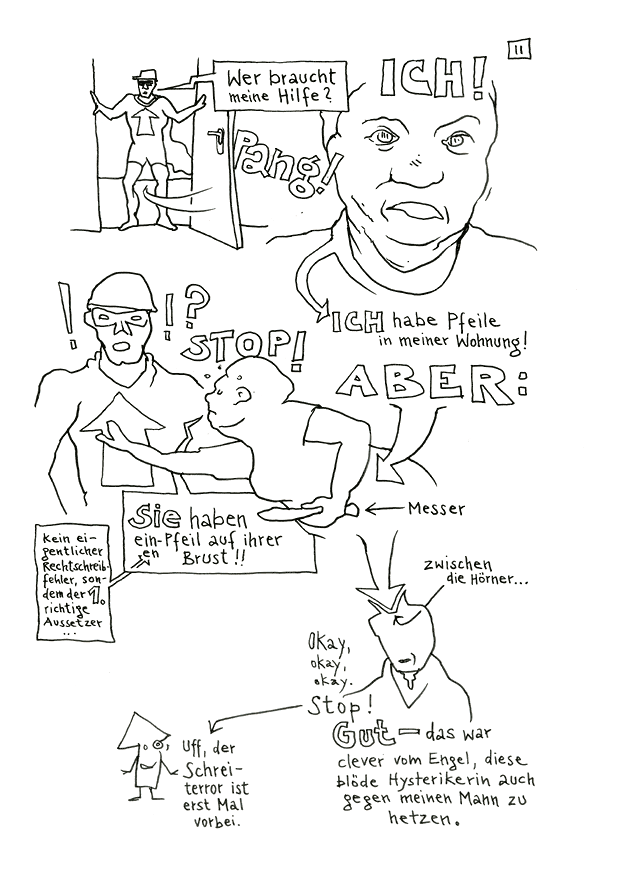 11
Wer braucht
meine Hilfe?
ICH!
Pang!
ICH habe Pfeile
in meiner Wohnung!
! !?
STOP!
ABER:
Messer
Sie haben
ein-Pfeil auf ihrer
en Brust!!
Kein ei-
gentlicher
Rechtschreib-
fehler, son-
dern der 1.
richtige
Aussetzer
...
zwischen
die Hörner...
Okay,
okay,
okay.
Stop!
Gut – das war
clever vom Engel, diese
blöde Hysterikerin auch
gegen meinen Mann zu
hetzen.
Uff, der
Schrei-
terror ist
erst Mal
vorbei.